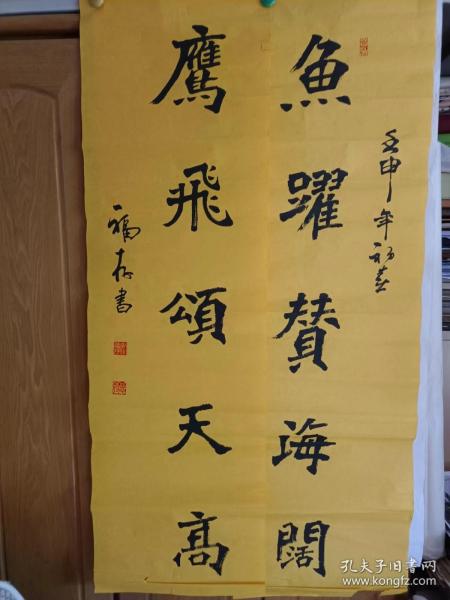 魚躍賛海闊
壬申年初春
鷹飛頌天高
福存書
孔夫子旧书网
www.kongfz.com